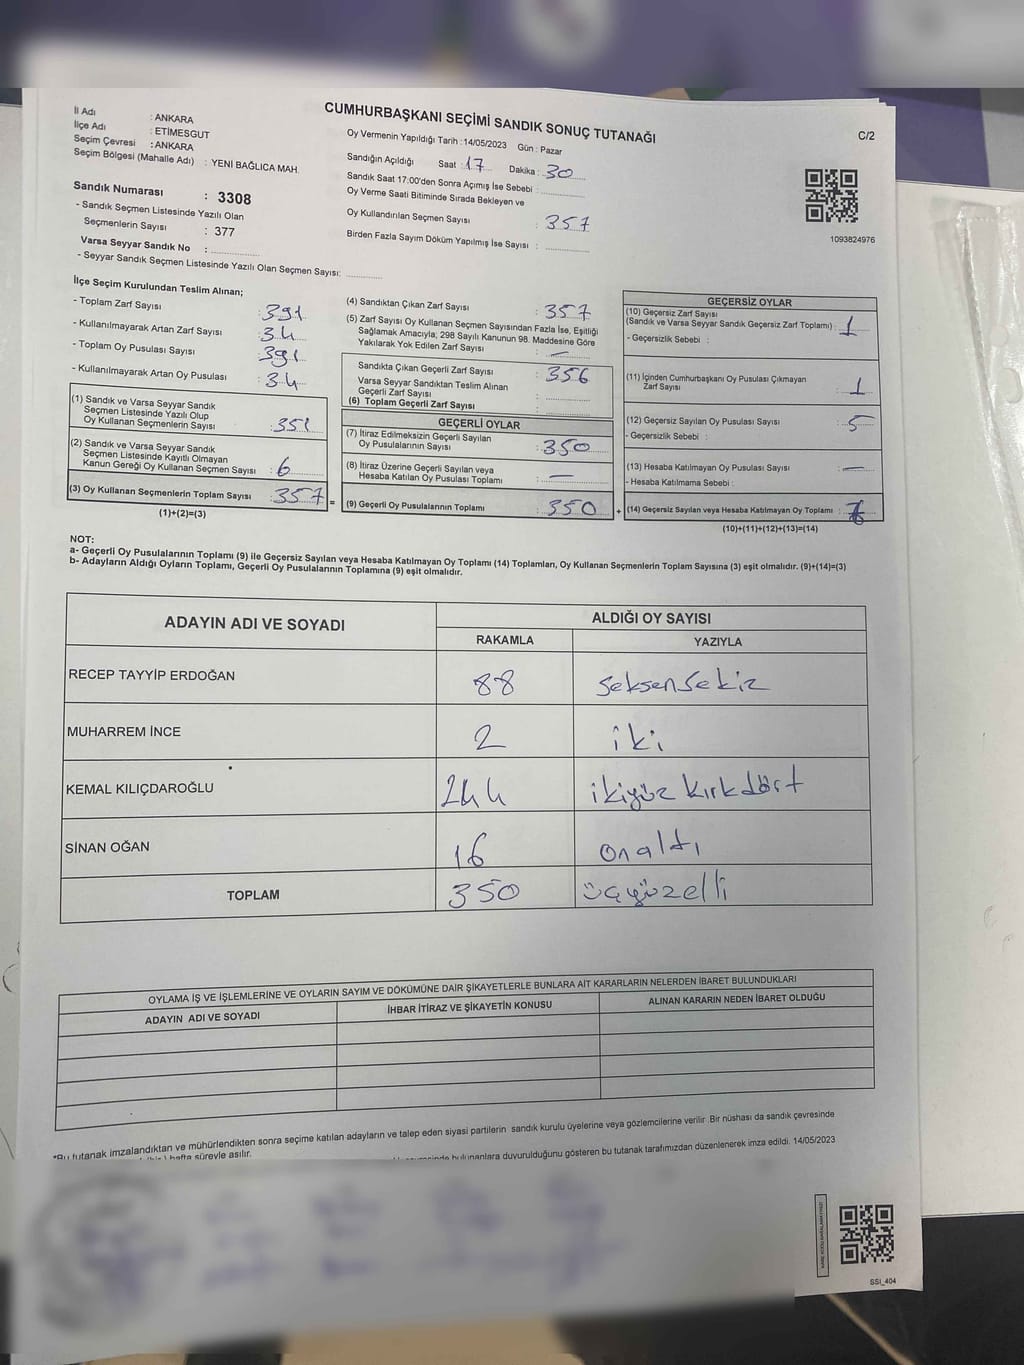 CUMHURBAŞKANI SEÇİMİ SANDIK SONUÇ TUTANAĞI
C/2
İl Adı : ANKARA
İlçe Adı : ETİMESGUT
Seçim Çevresi : ANKARA
Seçim Bölgesi (Mahalle Adı) : YENİ BAĞLICA MAH.
Sandık Numarası : 3308
- Sandık Seçmen Listesinde Yazılı Olan
Seçmenlerin Sayısı : 377
Varsa Seyyar Sandık No :
- Seyyar Sandık Seçmen Listesinde Yazılı Olan Seçmen Sayısı:
Oy Vermenin Yapıldığı Tarih : 14/05/2023 Gün : Pazar
Sandığın Açıldığı Saat : 17 Dakika : 30
Sandık Saat 17:00'den Sonra Açımış İse Sebebi :
Oy Verme Saati Bitiminde Sırada Bekleyen ve
Oy Kullandırılan Seçmen Sayısı : 357
Birden Fazla Sayım Döküm Yapılmış İse Sayısı :
1093824976
İlçe Seçim Kurulundan Teslim Alınan;
- Toplam Zarf Sayısı : 391
- Kullanılmayarak Artan Zarf Sayısı : 34
- Toplam Oy Pusulası Sayısı : 391
- Kullanılmayarak Artan Oy Pusulası : 34
(1) Sandık ve Varsa Seyyar Sandık
Seçmen Listesinde Yazılı Olup
Oy Kullanan Seçmenlerin Sayısı : 351
(2) Sandık ve Varsa Seyyar Sandık
Seçmen Listesinde Kayıtlı Olmayan
Kanun Gereği Oy Kullanan Seçmen Sayısı : 6
(3) Oy Kullanan Seçmenlerin Toplam Sayısı : 357 =
(1)+(2)=(3)
(4) Sandıktan Çıkan Zarf Sayısı : 357
(5) Zarf Sayısı Oy Kullanan Seçmen Sayısından Fazla İse, Eşitliği
Sağlamak Amacıyla; 298 Sayılı Kanunun 98. Maddesine Göre
Yakılarak Yok Edilen Zarf Sayısı : —
Sandıkta Çıkan Geçerli Zarf Sayısı : 356
Varsa Seyyar Sandıktan Teslim Alınan
Geçerli Zarf Sayısı :
(6) Toplam Geçerli Zarf Sayısı :
GEÇERLİ OYLAR
(7) İtiraz Edilmeksizin Geçerli Sayılan
Oy Pusulalarının Sayısı : 350
(8) İtiraz Üzerine Geçerli Sayılan veya
Hesaba Katılan Oy Pusulası Toplamı : —
(9) Geçerli Oy Pusulalarının Toplamı : 350 +
GEÇERSİZ OYLAR
(10) Geçersiz Zarf Sayısı
(Sandık ve Varsa Seyyar Sandık Geçersiz Zarf Toplamı) : 1
- Geçersizlik Sebebi :
(11) İçinden Cumhurbaşkanı Oy Pusulası Çıkmayan
Zarf Sayısı : 1
(12) Geçersiz Sayılan Oy Pusulası Sayısı : 5
- Geçersizlik Sebebi :
(13) Hesaba Katılmayan Oy Pusulası Sayısı : —
- Hesaba Katılmama Sebebi :
(14) Geçersiz Sayılan veya Hesaba Katılmayan Oy Toplamı : 7
(10)+(11)+(12)+(13)=(14)
NOT:
a- Geçerli Oy Pusulalarının Toplamı (9) ile Geçersiz Sayılan veya Hesaba Katılmayan Oy Toplamı (14) Toplamları, Oy Kullanan Seçmenlerin Toplam Sayısına (3) eşit olmalıdır. (9)+(14)=(3)
b- Adayların Aldığı Oyların Toplamı, Geçerli Oy Pusulalarının Toplamına (9) eşit olmalıdır.
ADAYIN ADI VE SOYADI ALDIĞI OY SAYISI
RAKAMLA YAZIYLA
RECEP TAYYİP ERDOĞAN 88 Seksensekiz
MUHARREM İNCE 2 iki
KEMAL KILIÇDAROĞLU 244 ikiyüz kırkdört
SİNAN OĞAN 16 onaltı
TOPLAM 350 üçyüzelli
OYLAMA İŞ VE İŞLEMLERİNE VE OYLARIN SAYIM VE DÖKÜMÜNE DAİR ŞİKAYETLERLE BUNLARA AİT KARARLARIN NELERDEN İBARET BULUNDUKLARI
ADAYIN ADI VE SOYADI İHBAR İTİRAZ VE ŞİKAYETİN KONUSU ALINAN KARARIN NEDEN İBARET OLDUĞU
*Bu tutanak imzalandıktan ve mühürlendikten sonra seçime katılan adayların ve talep eden siyasi partilerin sandık kurulu üyelerine veya gözlemcilerine verilir. Bir nüshası da sandık çevresinde
hafta süreyle asılır.
bulunanlara duyurulduğunu gösteren bu tutanak tarafımızdan düzenlenerek imza edildi. 14/05/2023
SSI_404